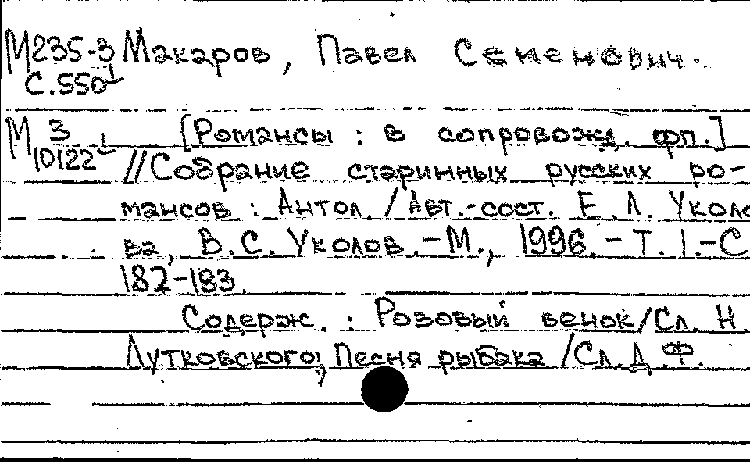 М235-3 Макаров, Павел Семенович.
С.550
М 3 [Романсы : в сопровожд. фп.]
10122 //Собрание старинных русских ро-
мансов : Антол. / Авт.-сост. Е. Л. Уколо
ва, В.С. Уколов. - М., 1996. - Т. 1. - С.
182-183.
Содерж. : Розовый венок/Сл. Н.
Лутковского; Песня рыбака /Сл. Д. Ф.